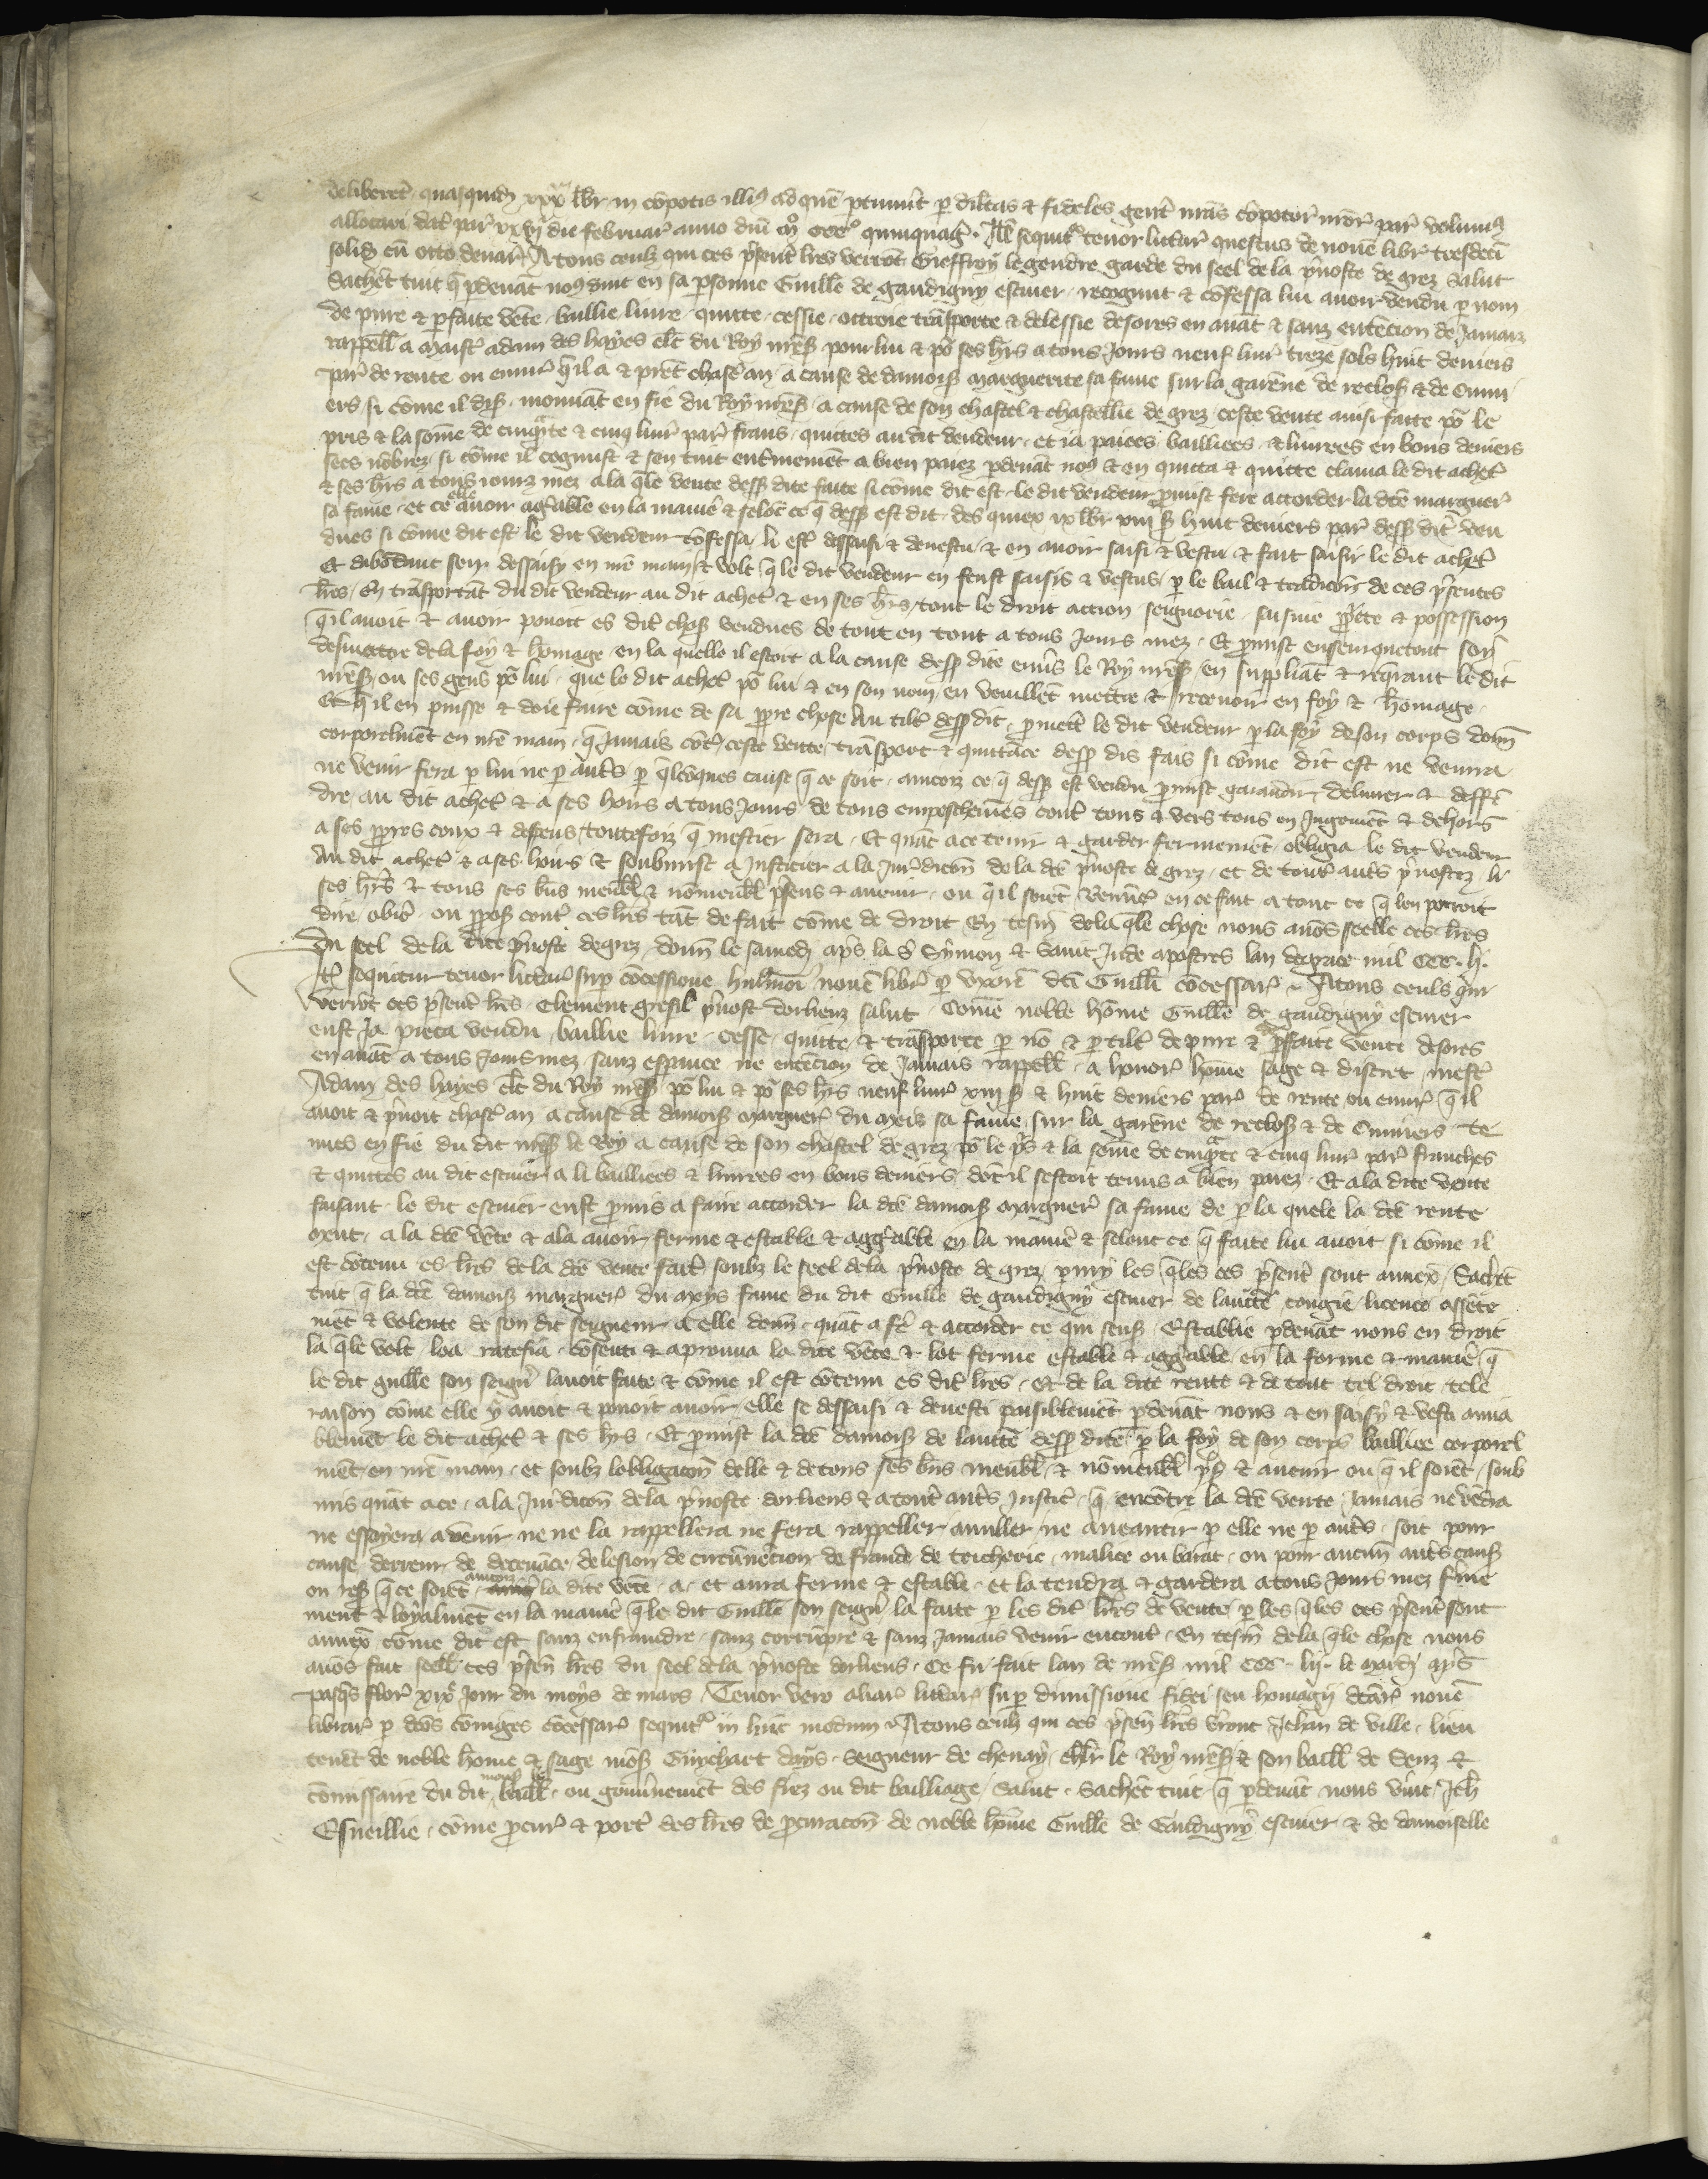 deliberet quasquidē xxx libr in cōpotis illiꝰ ad quē ptinuīt p dilctas & fideles gent' nr̄as cōpotor' nr̄or' par' volumꝰ
allocari dat' par' xxvj die februar' anno dnī mº cccº quinquag'. It' sequit' tenor litt'ar' questus de novē libr' tresdeci
solid cū octo denar' A tous ceulz qui ces p'sent' lr̄es verrōt Gieffroy legendre garde du seel de la p'voste de grez Salut
Sachēt tuit q̄ p devāt noꝰ vint en sa psonne Guill'e de gaudigny escuier recognut & cōfessa lui avoir vendu p nom
de pure & pfaite vēte baillie livre quitte cessie ottroie trāsporte & delessie desores en avāt & sanz entēcion de jamaiz
rappell' a maist' adam des hayes cl'c du Roy nr̄es' pour lui & po' ses hr̄s a tous jours neuf livr' treze sols huit deniers
par' de rente ou envir' q̄ il a & prēt chasc' an a cause de damois' marguerite sa fame sur la garēne de reclos' & de Onni
ers si cōme il dis' mouvāt en fie du Roy nr̄es' a cause de son chastel & chastellie de grez ceste vente ainsi faite po' le
pris & la som̄e de cinqᵃte & cinq livr' par' frans quittes au dit vendeur et ja paiees bailliees & livrees en bons deniers
secs nōbrez si cōme il cognust & sen tint ent'inemēt a bien paiez pdevāt noꝰ & en quitta & quitte clama le dit achet'
& ses hr̄s a tous jourz mez a la q̄le vente dess' dite faite si cōme dit est le dit vendeur pmist fere accorder la dc̄e marguer'
sa fame et ce avoir ag'able en la manie' & selōc ce q̄ dess' est dit des quiex ix libr' xiij s' huit deniers par' dess' dit' ven
dues si cōme dit est le dit vendeur cōfessa li est' dessaisi & devestu & en avoir saisi & vestu & fait saisir le dit achet'
Et dabōdant sen dessaisy en nr̄e main & volt q̄ le dit vendeur en feust saisis & vestus p le bail & tradicōn de ces p'sentes
lr̄es En trāsportāt du dit vendeur au dit achet' & en ses hr̄s tout le droit action seignorie saisine pp'iete & possession
q̄ il avoit & avoir povoit es dit' chos' vendues de tout en tout a tous jours mez Et pmist ensemquetout soy
desmettre de la foy & homage en la quelle il estoit a la cause dess' dite envs le Roy nr̄es' en suppliāt & req̄rant le dit
nr̄es' ou ses gens po' lui que le dit achet' po' lui & en son nom en veuillēt mettre & recevoir en foy & homage
Et q̄ il en puisse & doie faire cōme de sa ppre chose Au tilt' dess' dit pmett' le dit vendeur p la foy de son corps dōn
corporelmēt en nr̄e main q̄ jamais cōt' ceste vente trāsport & quittāce dess' dis fais si cōme dit est ne venra
ne venir fera p lui ne p aut's p q̄lcūques cause q̄ ce soit aincoiz ce q̄ dess' est vendu pmist garātir delivrer & deffē
dre au dit achet' & a ses hoirs a tous jours de tous empeschemēs cont' tous & vers tous en jugemēt & dehors
a ses ppres coux & despens toutefoiz q̄ mestier sera Et quāt a ce tenir & garder fermemēt obliga le dit vendeur
Au dit achet' & a ses hoirs & soubmist a justicier a la jur'dicōn de la dc̄e p'voste de grez et de tout' aut's p'vostez li
ses hr̄s & tous ses bn̄s meubl' & nōmeubl' p'sens & avenir ou q̄ il soiēt Renūc' en ce fait a tout ce q̄ len porroit
dire obic' ou ppos' cont' ces lr̄es tāt de fait cōme de droit En tesm' de la q̄le chose nous avōs seelle ces lr̄es
Du seel de la dite p'voste de grez dōn le samedi ap's la s' Symon & saint Jude apostres lan de grace mil ccc. lj.
It' sequitur tenor litt'ar' sup cōcessione hui'moi novē libr' p uxorē dc̄i Guill'i cōcessar' A tous ceuls qui
verrōt ces p'sent' lr̄es Clement gresil' p'vost dorliens salut Cōme noble hōme Guill'e de gaudigny escuier
eust ja pieca vendu baillie livre cesse quitte & trāsporte p nō & p tilt' de pure & pfaite vente desores
en avāt a tous jours mez sanz espance ne entēcion de jamais rappell' a honor' hōme sage & discret mest'
Adam des hayes cl'c du Roy nr̄es' po' lui & po' ses hr̄s neuf livr' xiij s' & huit deniers par' de rente ou envir' q̄ il
avoit & p'noit chasc' an a cause de damois' marguer' du meis sa fame sur la garēne de reclos' & de Onniers te
nues en fie du dit nr̄es' le Roy a cause de son chastel de grez po' le p's & la som̄e de cinqᵃte & cinq livr' par' franches
& quittes au dit escuier a li bailliees & livrees en bons deniers dōt il sestoit tenus a bien paiez Et a la dite vente
faisant le dit escuier eust pmis a faire accorder la dc̄e damois' marguer' sa fame de p la quele la dc̄e rente
meut a la dc̄e vēte & a la avoir ferme & estable & agg'able en la manie' & selonc ce q̄ faite lui avoit si cōme il
est cōtenu es lr̄es de la dc̄e vente fait' soubz le seel de la p'voste de grez pmy les q̄les ces p'sent' sont annex' Sachēt
tuit q̄ la dc̄e damois' marguer' du meys fame du dit Guill'e de gaudigny escuier de lauct'te congie licence assēte
mēt & volente de son dit seigneur a elle dōn quāt a f'e & accorder ce qui sens' Establie pdevāt nous en droit
la q̄le volt loa ratefia cōsenti & aprouva la dite vēte & lot ferme estable & agg'able en la forme & manie' q̄
le dit guill'e son seign' lavoit faite & cōme il est cōtenu es dit' lr̄es Et de la dite rente & de tout tel droit tele
raison cōme elle y avoit & povoit avoir elle se dessaisi & devesti paisiblemēt pdevāt nous & en saisy & vesti amia
blemēt le dit achet' & ses hr̄s Et pmist la dc̄e damois' de laucte dess' dite p la foy de son corps bailliee corporel
mēt en nr̄e main et soubz lobligacōn delle & de tous ses bn̄s meubl' & nōmeubl' p's' & avenir ou q̄ il soiēt soub
mis quāt a ce a la jur'dicōn de la p'voste dorliens & a tout' aut's justic' q̄ encōtre la dc̄e vente jamais ne vēdra
ne essoyera a venir ne ne la rappellera ne fera rappeller anuller ne aneantir p elle ne p aut's soit pour
cause derreur de decevāce de lesion de circūvēcion de fraude de tricherie malice ou barat ou pour aucun aut's caus'
ou res' q̄ ce soiēt aincoiz la dite vēte a et aura ferme & estable et la tendra & gardera a tous jours mez f'me
ment & loyalmēt en la manie' q̄ le dit Guill'e son seign' la faite p les dit' lr̄es de vente p les q̄les ces p'sent' sont
annex' cōme dit est sanz enfraindre sanz corrūpre & sanz jamais venir encont' En tesm' de la q̄le chose nous
avōs fait seell' ces p'sen' lr̄es du seel de la p'voste dorliens Ce fu fait lan de nr̄es' mil ccc lij. le mardi ap's
pasq's flor' xixᵉ jour du moys de mars Tenor vero aliar' litt'ar' sup dimissione fidei seu homagii dc̄ar' novē
librar' p dc̄os cōiuges cōcessar' sequit' in hūc modum A tous ceulz qui ces p'sen' lr̄es v'ront Jehan de ville lieu
tenāt de noble hōme & sage mōs' Guychart dars Seigneur de chenay ch'lr le Roy nr̄es' & son baill' de Senz &
cōmissaire du dit mons' le baill' ou gouv'nemēt des fiez ou dit bailliage Salut Sachēt tuit q̄ pdevāt nous vint Jeh'
Esveillie cōme pcur' & port' des lr̄es de pcuracōn de noble hōme Guill'e de Gaudigny escuier & de damoiselle